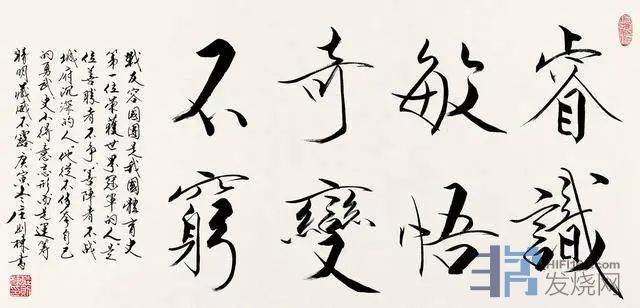 睿識
敏悟
奇變
不窮
戰友容國團是我國體育史
第一位榮獲世界冠軍的人是
位善勝者不爭善陣者不戰
城府沉深的人他從不自己
的勇武更不得意忘形而是運籌
明藏威不露庚寅冬莊則棟書
发烧网